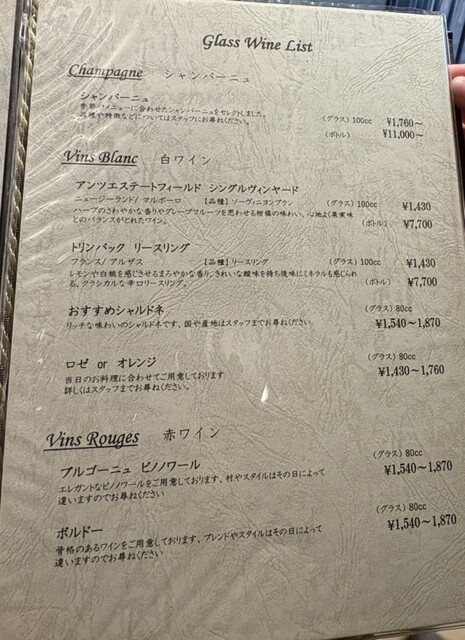 Glass Wine List
Champagne シャンパーニュ
シャンパーニュ
季節のメニューに合わせたシャンパーニュをセレクトしました。
品種や特徴などについてはスタッフにお尋ねください。
(グラス) 100cc ¥1,760～
(ボトル) ¥11,000～
Vins Blanc 白ワイン
アンツエステートフィールド シングルヴィンヤード
ニュージーランド/ マルボーロ 【品種】ソーヴィニヨンブラン (グラス) 100cc ¥1,430
ハーブのさわやかな香りやグレープフルーツを思わせる柑橘の味わい、心地よく果実味
とのバランスがとれたワイン。
(ボトル) ¥7,700
トリンバック リースリング
フランス/ アルザス 【品種】リースリング (グラス) 100cc ¥1,430
レモンや白桃を感じさせるまろやかな香り。きれいな酸味を持ち後味にミネラルも感じられ
る、クラシカルな辛口リースリング。
(ボトル) ¥7,700
おすすめシャルドネ
リッチな味わいのシャルドネです、国や産地はスタッフまでお尋ねください
(グラス) 80cc
¥1,540～1,870
ロゼ or オレンジ
当日のお料理に合わせてご用意しております
詳しくはスタッフまでお尋ねください。
(グラス) 80cc
¥1,430～1,760
Vins Rouges 赤ワイン
ブルゴーニュ ピノノワール
エレガントなピノノワールをご用意しております、村やスタイルはその日によって
違いますのでお尋ねください
(グラス) 80cc
¥1,540～1,870
ボルドー
骨格のあるワインをご用意しております、ブレンドやスタイルはその日によって
違いますのでお尋ねください
(グラス) 80cc
¥1,540～1,870